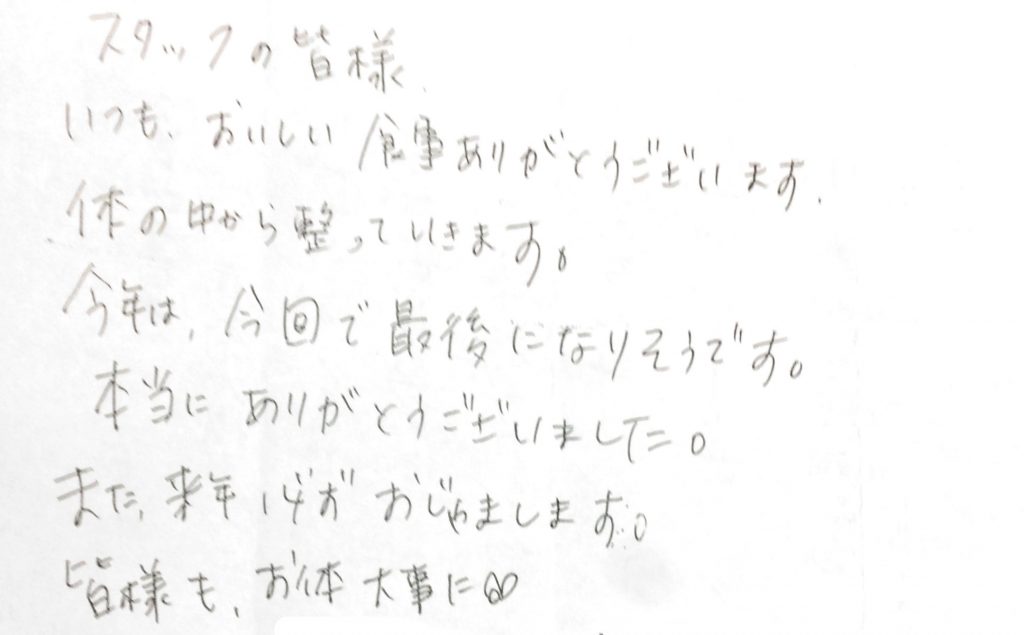 スタッフの皆様
いつも、おいしい食事ありがとうございます.
体の中から整っていきます。
今年は、今回で最後になりそうです。
本当にありがとうございました。
また、来年 おじゃまします。
皆様も、お体大事に∞